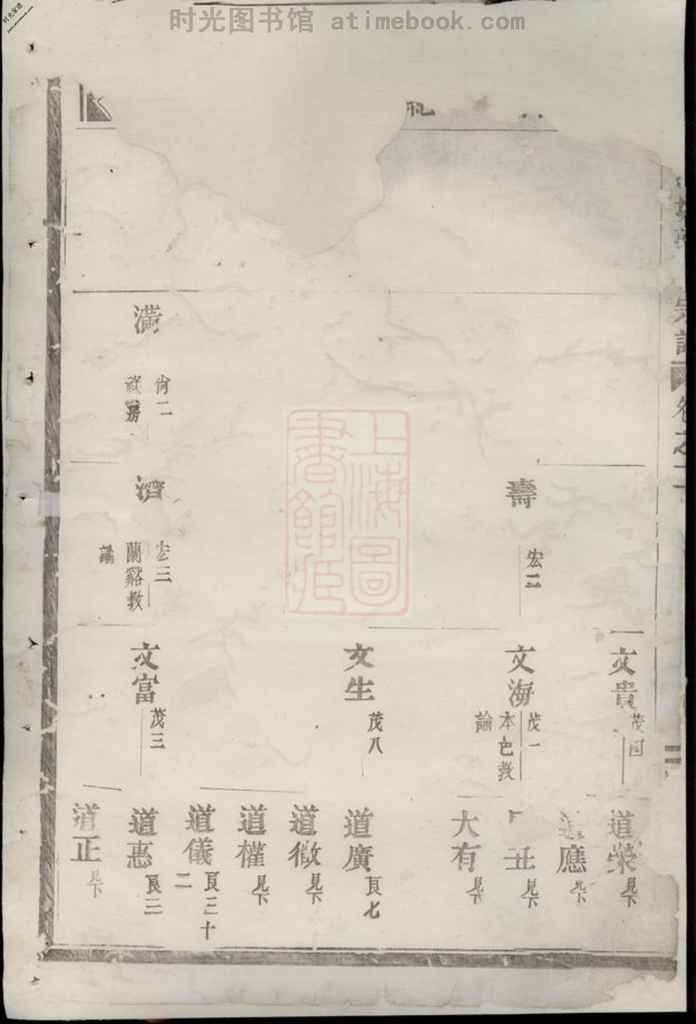 时光图书馆 atimebook.com
宗譜 卷之二
壽
宏二
滿
肖二
濟
宏三
蘭谿教
諭
文貴
茂四
文海
茂一
本邑教
諭
文生
茂八
文富
茂三
道榮
見下
應
見下
丑
見下
大有
見下
道廣
良七
道徵
見下
道權
見下
道儀
良三十
二
道惠
良二
道正
見下
上海圖
書館藏